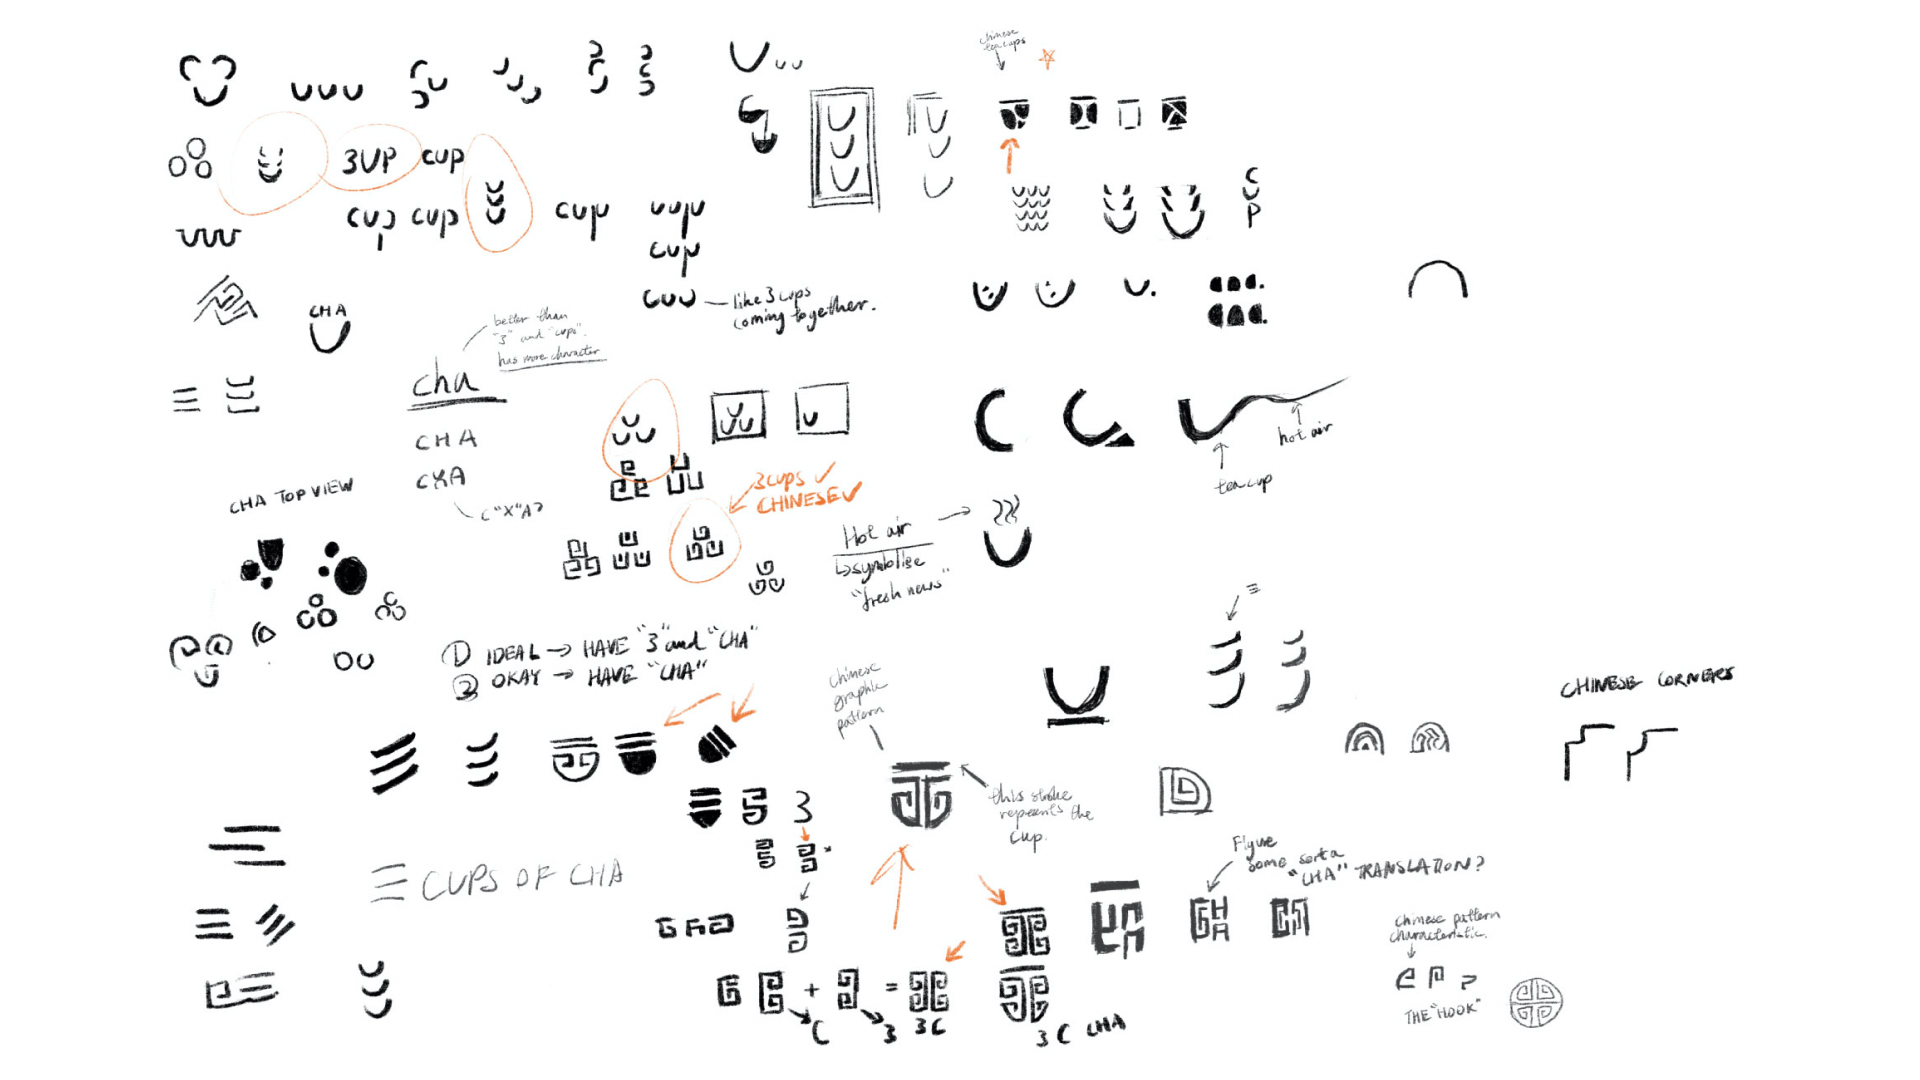 chinese
tea cups
3UP
cup
cup
cup
cup
uupu
cup
cuu
like 3 cups
coming together.
C
U
P
CHA
better than
"3" and "cups".
has more character
cha
CHA
CXA
C"X"A?
CHA TOP VIEW
3 CUPS ✓
CHINESE ✓
Hot air
↳ symbolise
"fresh news"
tea cup
hot air
① IDEAL → HAVE "3" and "CHA"
② OKAY → HAVE "CHA"
chinese
graphic
pattern
this stroke
represents the
cup.
CHINESE CORNERS
3
三 CUPS OF CHA
Figure
some sorta
"CHA" TRANSLATION?
chinese pattern
characteristic.
THE "HOOK"
+
=
C
3
3C
3 C CHA